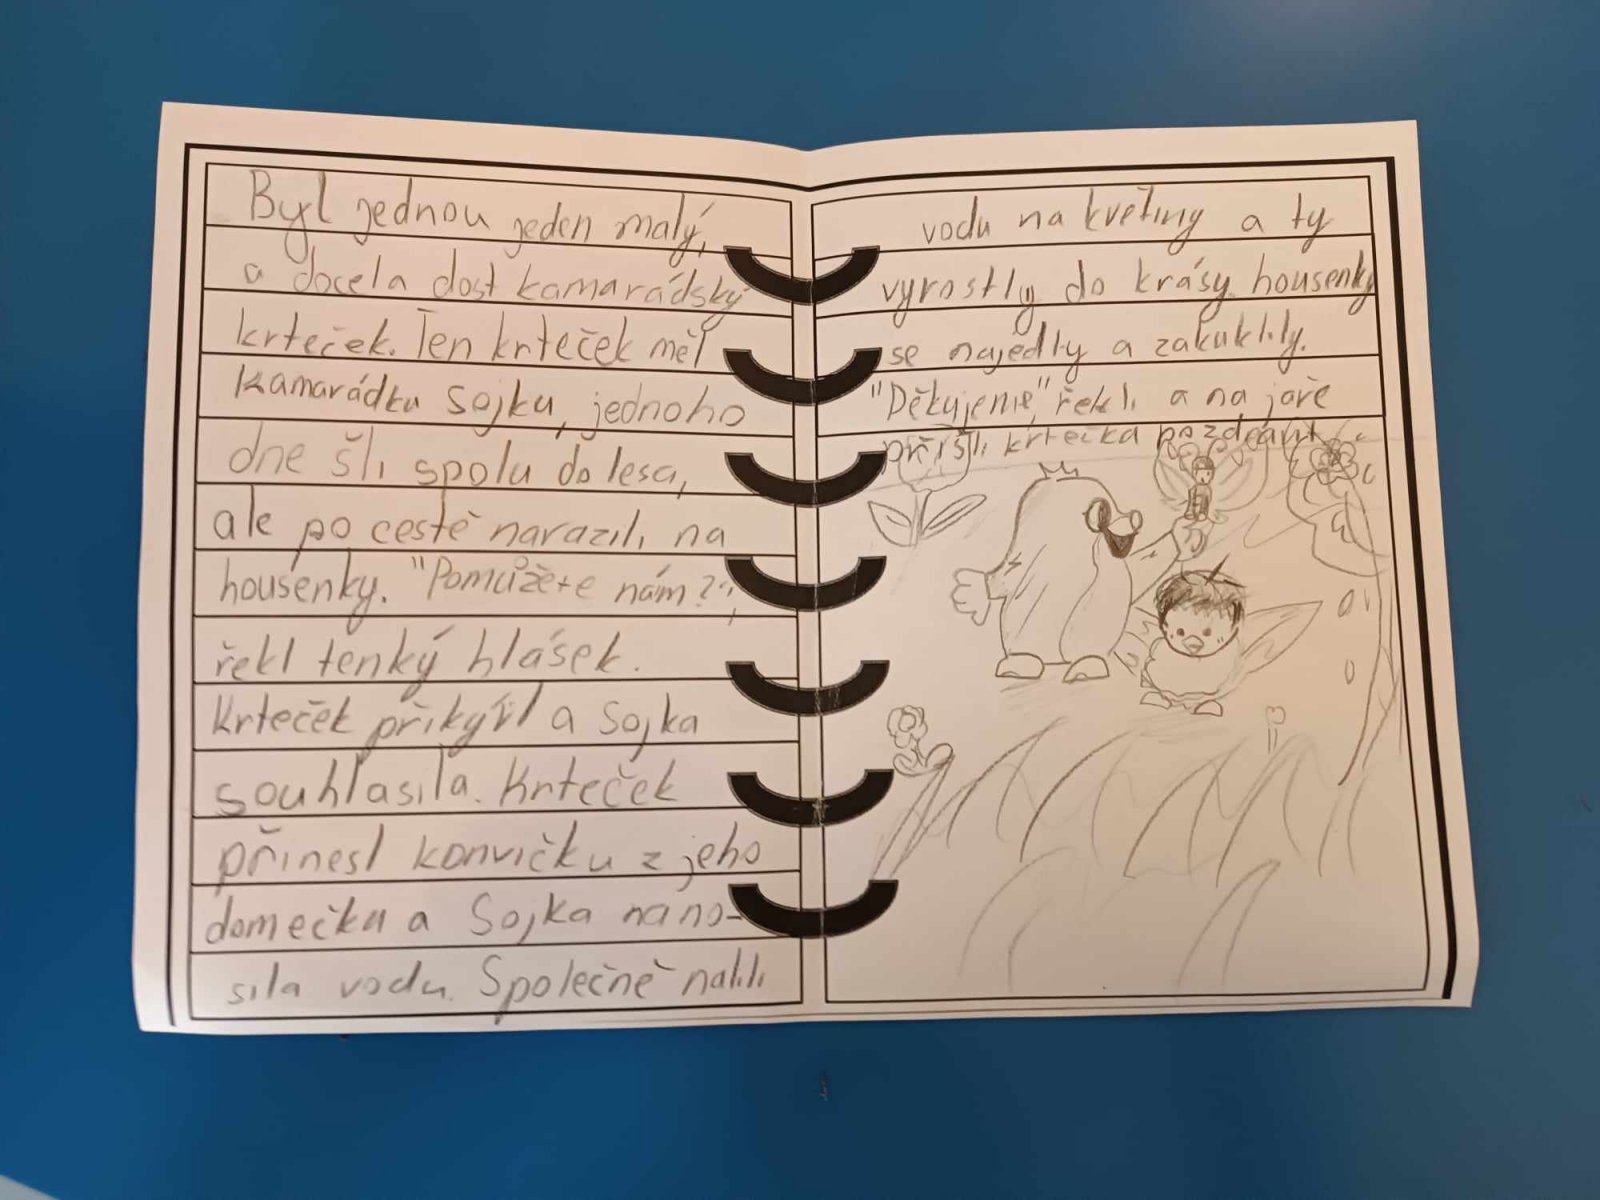 Byl jednou jeden malý,
a docela dost kamarádský
krteček. Ten krteček měl
kamarádku Sojku, jednoho
dne šli spolu do lesa,
ale po cestě narazili na
housenky. "Pomůžete nám?",
řekl tenký hlásek.
Krteček přikývl a Sojka
souhlasila. Krteček
přinesl konvičku z jeho
domečku a Sojka nano-
sila vodu. Společně nalili
vodu na květiny a ty
vyrostly do krásy housenky
se najedly a zakuklily.
"Děkujeme", řekli a na jaře
přiršli krtečka pozdravit.